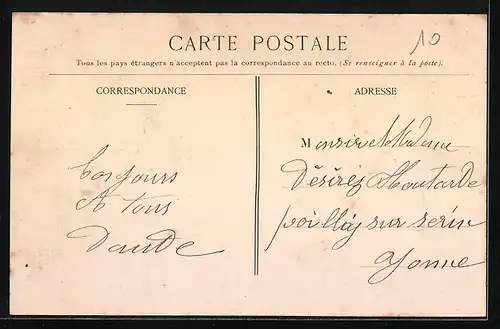 10
CARTE POSTALE
Tous les pays étrangers n'acceptent pas la correspondance au recto. (Se renseigner à la poste).
CORRESPONDANCE
bonjours
A tous
Daude
ADRESSE
Monsire et Madame
Désiréz Moutarde
poillÿ sur serin
Yonne